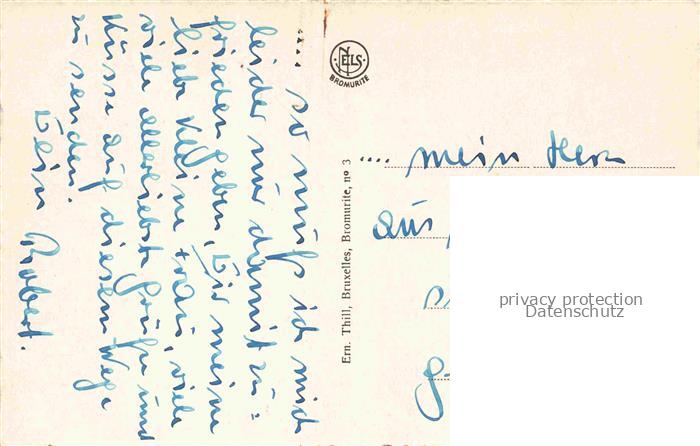 .... so muß ich mich
leider nur damit zu-
frieden geben, Dir meine
liebe kleine Frau, viele
viele allerliebste Grüße und
Küsse auf diesem Wege
zu senden.
Dein Robert.
NELS
BROMURITE
Ern. Thill, Bruxelles, Bromurite, nº 3
.... mein Herz
aus
privacy protection
Datenschutz